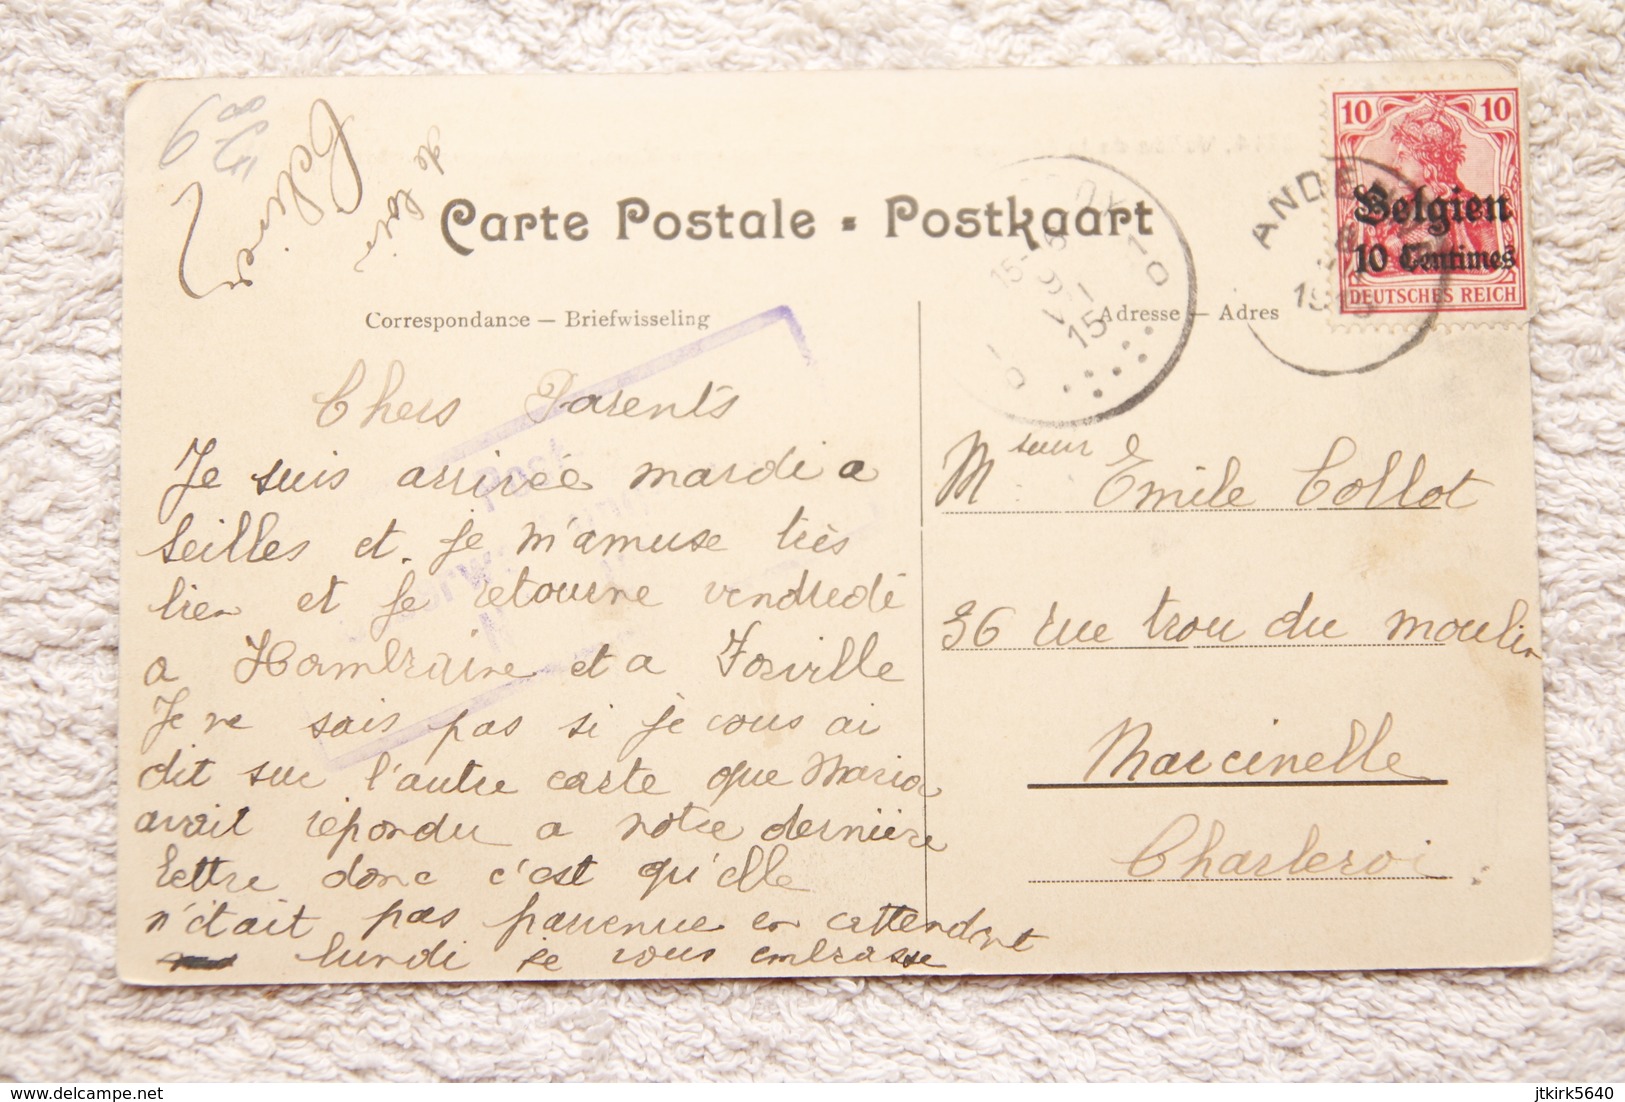 Carte Postale - Postkaart
Correspondance — Briefwisseling
Adresse — Adres
10 10
Belgien
10 Centimes
DEUTSCHES REICH
ANDENNE
15
Chers Parents
Je suis arrivée mardi a
Seilles et je m'amuse très
bien et je retourne vendredi
a Hambraine et a Forville
Je ne sais pas si je vous ai
dit sur l'autre carte que Maria
avait répondu a notre dernière
lettre donc c'est qu'elle
n'était pas parvenue en attendant
lundi je vous embrasse
de loin
Msieur Emile Collot
36 rue trou du moulin
Marcinelle
Charleroi
Post
jtkirk5640
http://www.delcampe.net